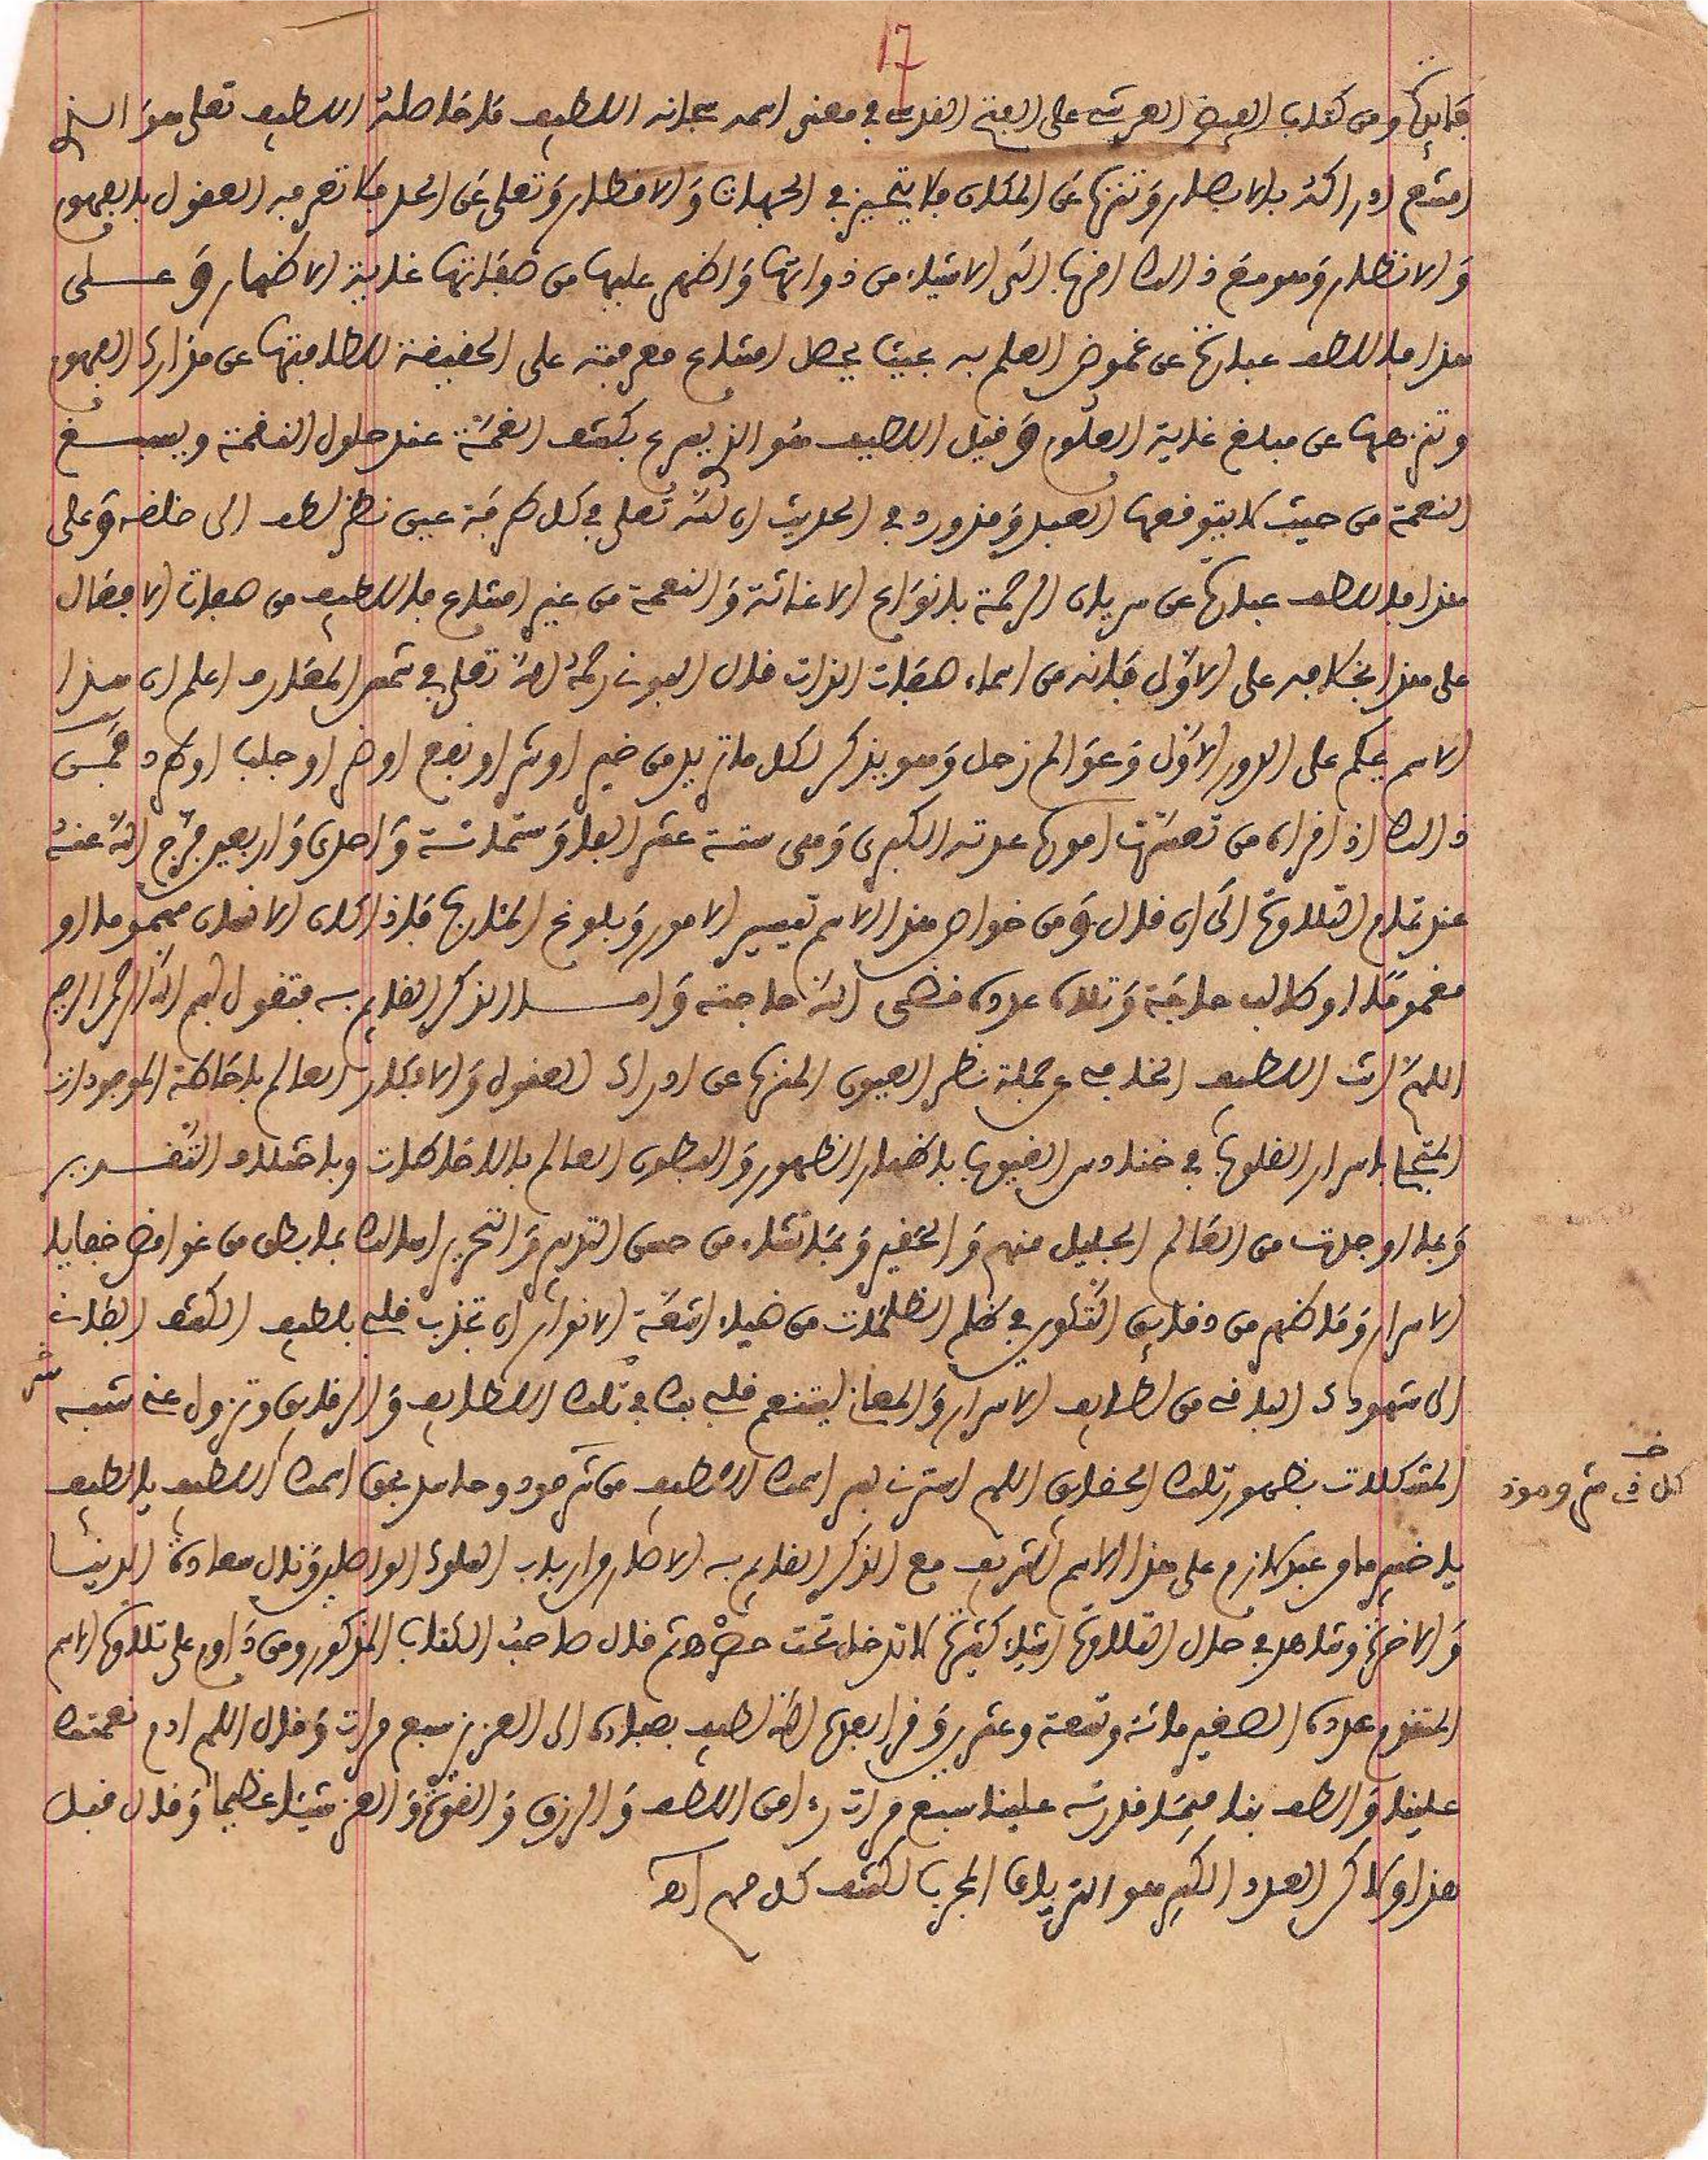 17
فائدة ومن كتاب الفيض العرشي على الفتح القدسي في معنى اسمه سبحانه اللطيف قال ما حاصله اللطيف تعالى هو الذي
امتنع ادراكه بالابصار وتنزه عن المكان فلا يتحيز في الجهات والاقطار وتعلى عن الحد فلا تعرفه العقول بالفهوم
والانظار وهو مع ذالك اقرب الى الاشياء من ذواتها واظهر عليها من صفاتها غاية الاظهار وعلى
هذا فاللطف عبارة عن غموض العلم به بحيث يحصل امتناع معرفته على الحقيقة للطافتها عن مدارك الفهوم
وتنزهها عن مبلغ غاية العلوم وقيل اللطيف هو الذي يسرع بكشف الغمة عند حلول النقمة ويسبغ
النعمة من حيث لا يتوقعها العبد وقد ورد في الحديث ان لله تعلى في كل طرفة عين نظر لطف الى خلقه وعلى
هذا فاللطف عبارة عن سريان الرحمة بانواع الاغاثة والنعمة من غير امتناع فاللطيف من صفات الافعال
على هذا بخلافه على الاول فانه من اسماء صفات الذات قال البوني رحمه الله تعلى في شمس المعارف اعلم ان هذا
الاسم يحكم على الدور الاول وعوالم زحل وهو يذكر لكل ما تريد من خير او شر او نفع او ضر او جلب او طرد فمن
ذالك اذا قرأه من تعسرت اموره عدته الكبرى وهي ستة عشر الفا وستمائة واحدى واربعين فرج الله عنه
عند تمام التلاوة الى ان قال ومن خواص هذا الاسم تيسير الامور وبلوغ المئارب فاذا كان الانسان مهموما او
مغموما او طالب حاجة وتلاه عدده قضى الله حاجته وامـا الذكر القائم به فتقول بسم الله الرحمن الرحيم
اللهم انت اللطيف الخافي عن جملة نظر العيون المنزه عن ادراك العقول والافكار العالم باحاطة الموجودات
المتجلي باسرار القلوب في خنادس الغيوب باظهار الظهور والبطون العالم بالاحاطات وباختلاف التقدير
وبما اوجدت من العالم الجليل منهم والحقير وبما تشاء من حسن التدبير والتحرير اسالك بما بطن من غوامض خفايا
الاسرار وما ظهر من دقايق التكوين في ظلم الظلمات من ضياء اشعة الانوار ان تجذب قلبي بلطيف الكشف الذات
الى شهودك الباقي من لطايف الاسرار والمعاني ليتنعم قلبي بك في تلك اللطايف والرقايق وتزول عني شبه
المشكلات بظهور تلك الحقايق اللهم استرني بسر اسمك اللطيف من شر مود وحاسد بحق اسمك اللطيف يا لطيف
كل ذي شر ومود
يا خبير وما من عبد لازم على هذا الاسم الشريف مع الذكر القائم به الا صار من ارباب العلوم الواصلين ونال سعادة الدنيا
والاخرة وشاهد في حال التلاوة اشياء كثيرة لا تدخل تحت حصر ثم قال صاحب الكتاب المذكور ومن داوم على تلاوة الاسم
المتقدم عدده الصغير مائة وتسعة وعشرين وقرا بعده الله لطيف بعباده الى العزيز سبع مرات وقال اللهم ادم نعمتك
علينا والطف بنا فيما قدرته علينا سبع مرات رءا من اللطف والرزق والفتح والعز شيئا عظيما وقال قبل
هذا وذاكر العدد الكبير هو الترياق المجرب لكشف كل مهم اهـ